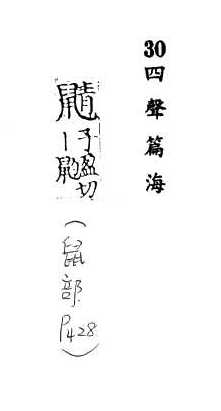 30四聲篇海
鼱
子盈切
丨鼩
（鼠部 P428）